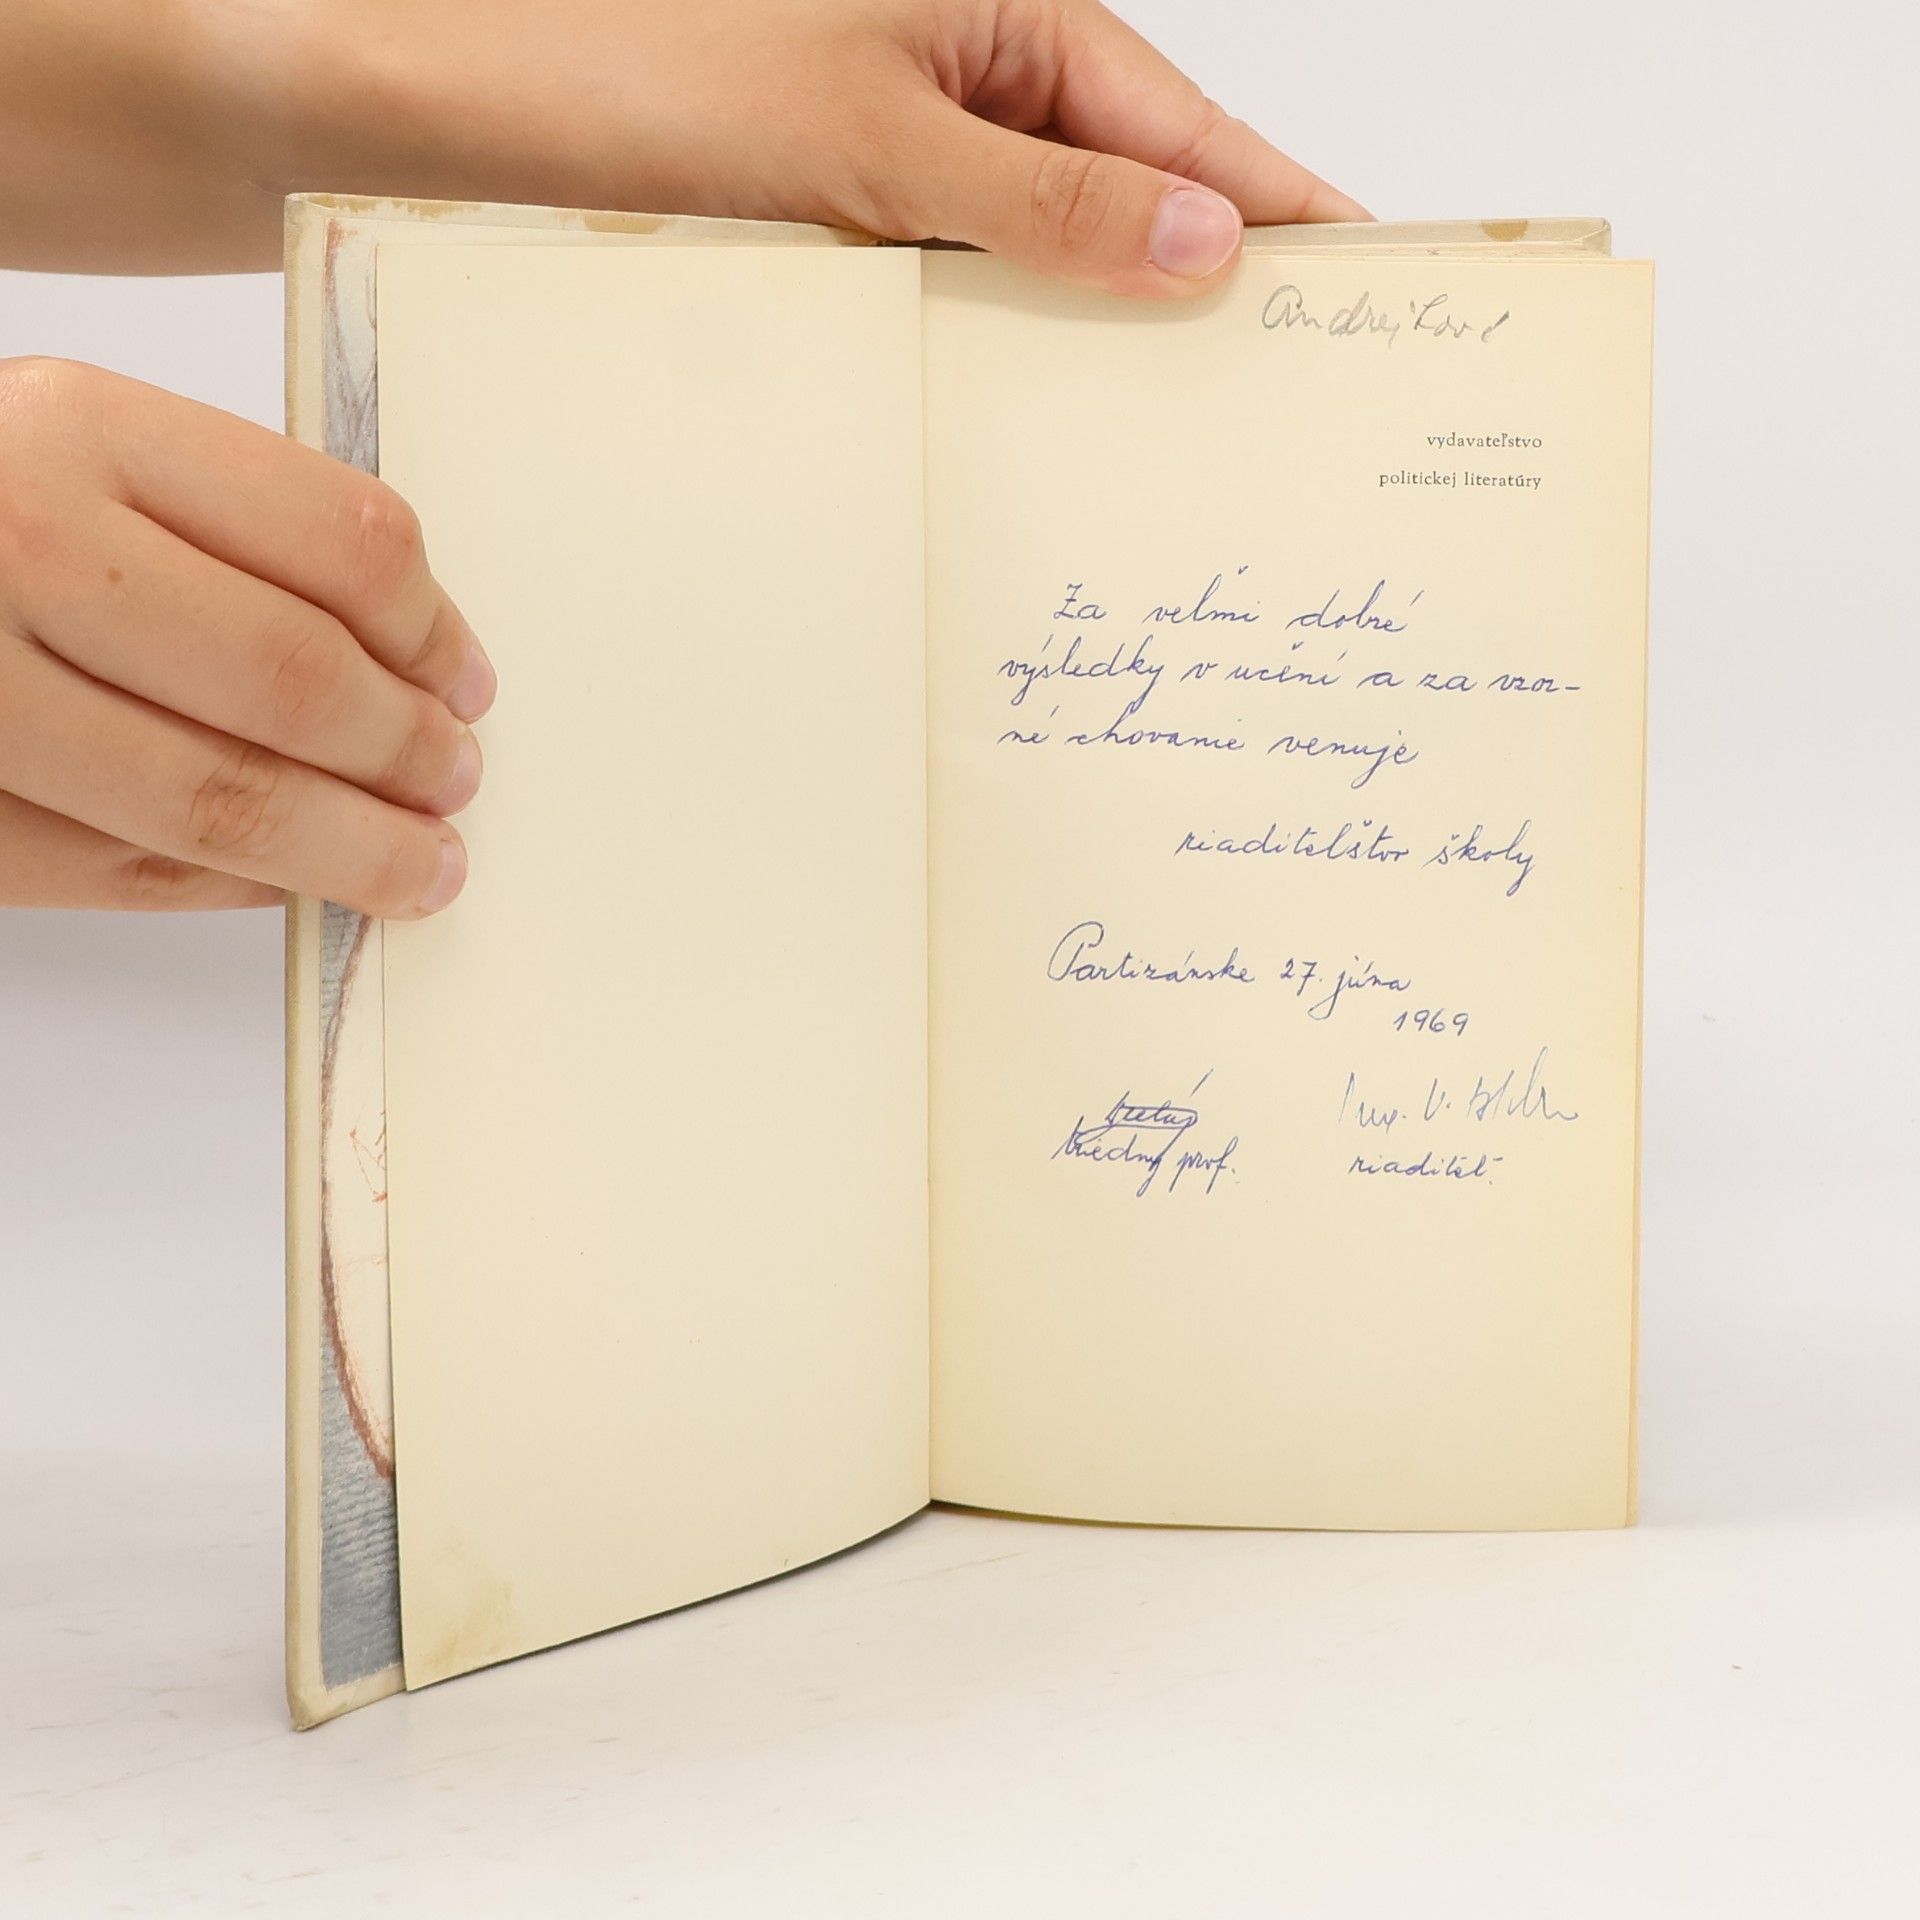 vydavateľstvo
politickej literatúry
Za veľmi dobré
výsledky v učení a za vzor-
né chovanie venuje
riaditeľstvo školy
Partizánske 27. júna
1969
V.
triedny prof.
riaditeľ